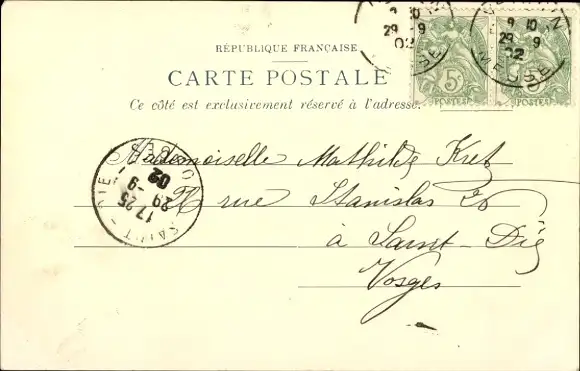 RÉPUBLIQUE FRANÇAISE
CARTE POSTALE
Ce côté est exclusivement réservé à l'adresse.
9 10
29 9
02
MEUSE
9 10
29 9
02
MEUSE
5c
POSTES
POSTES
Mademoiselle Mathilde
rue Stanislas
à Saint-Dié
Vosges
SAINT-DIÉ
VOSGES
17 25
29 -9
02